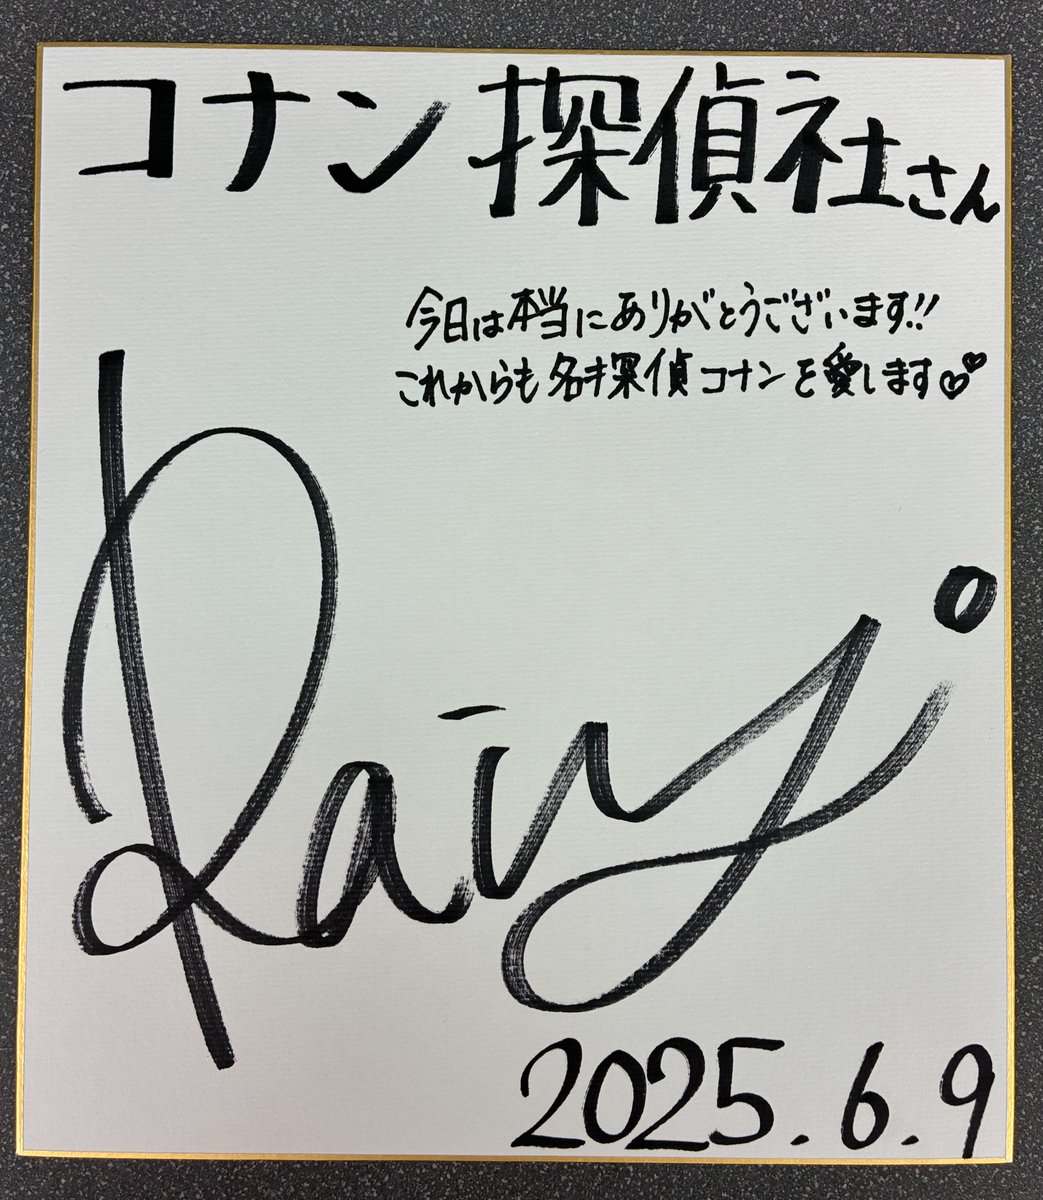 コナン探偵社さん
今日は本当にありがとうございます!!
これからも名探偵コナンを愛します♡♡
2025.6.9